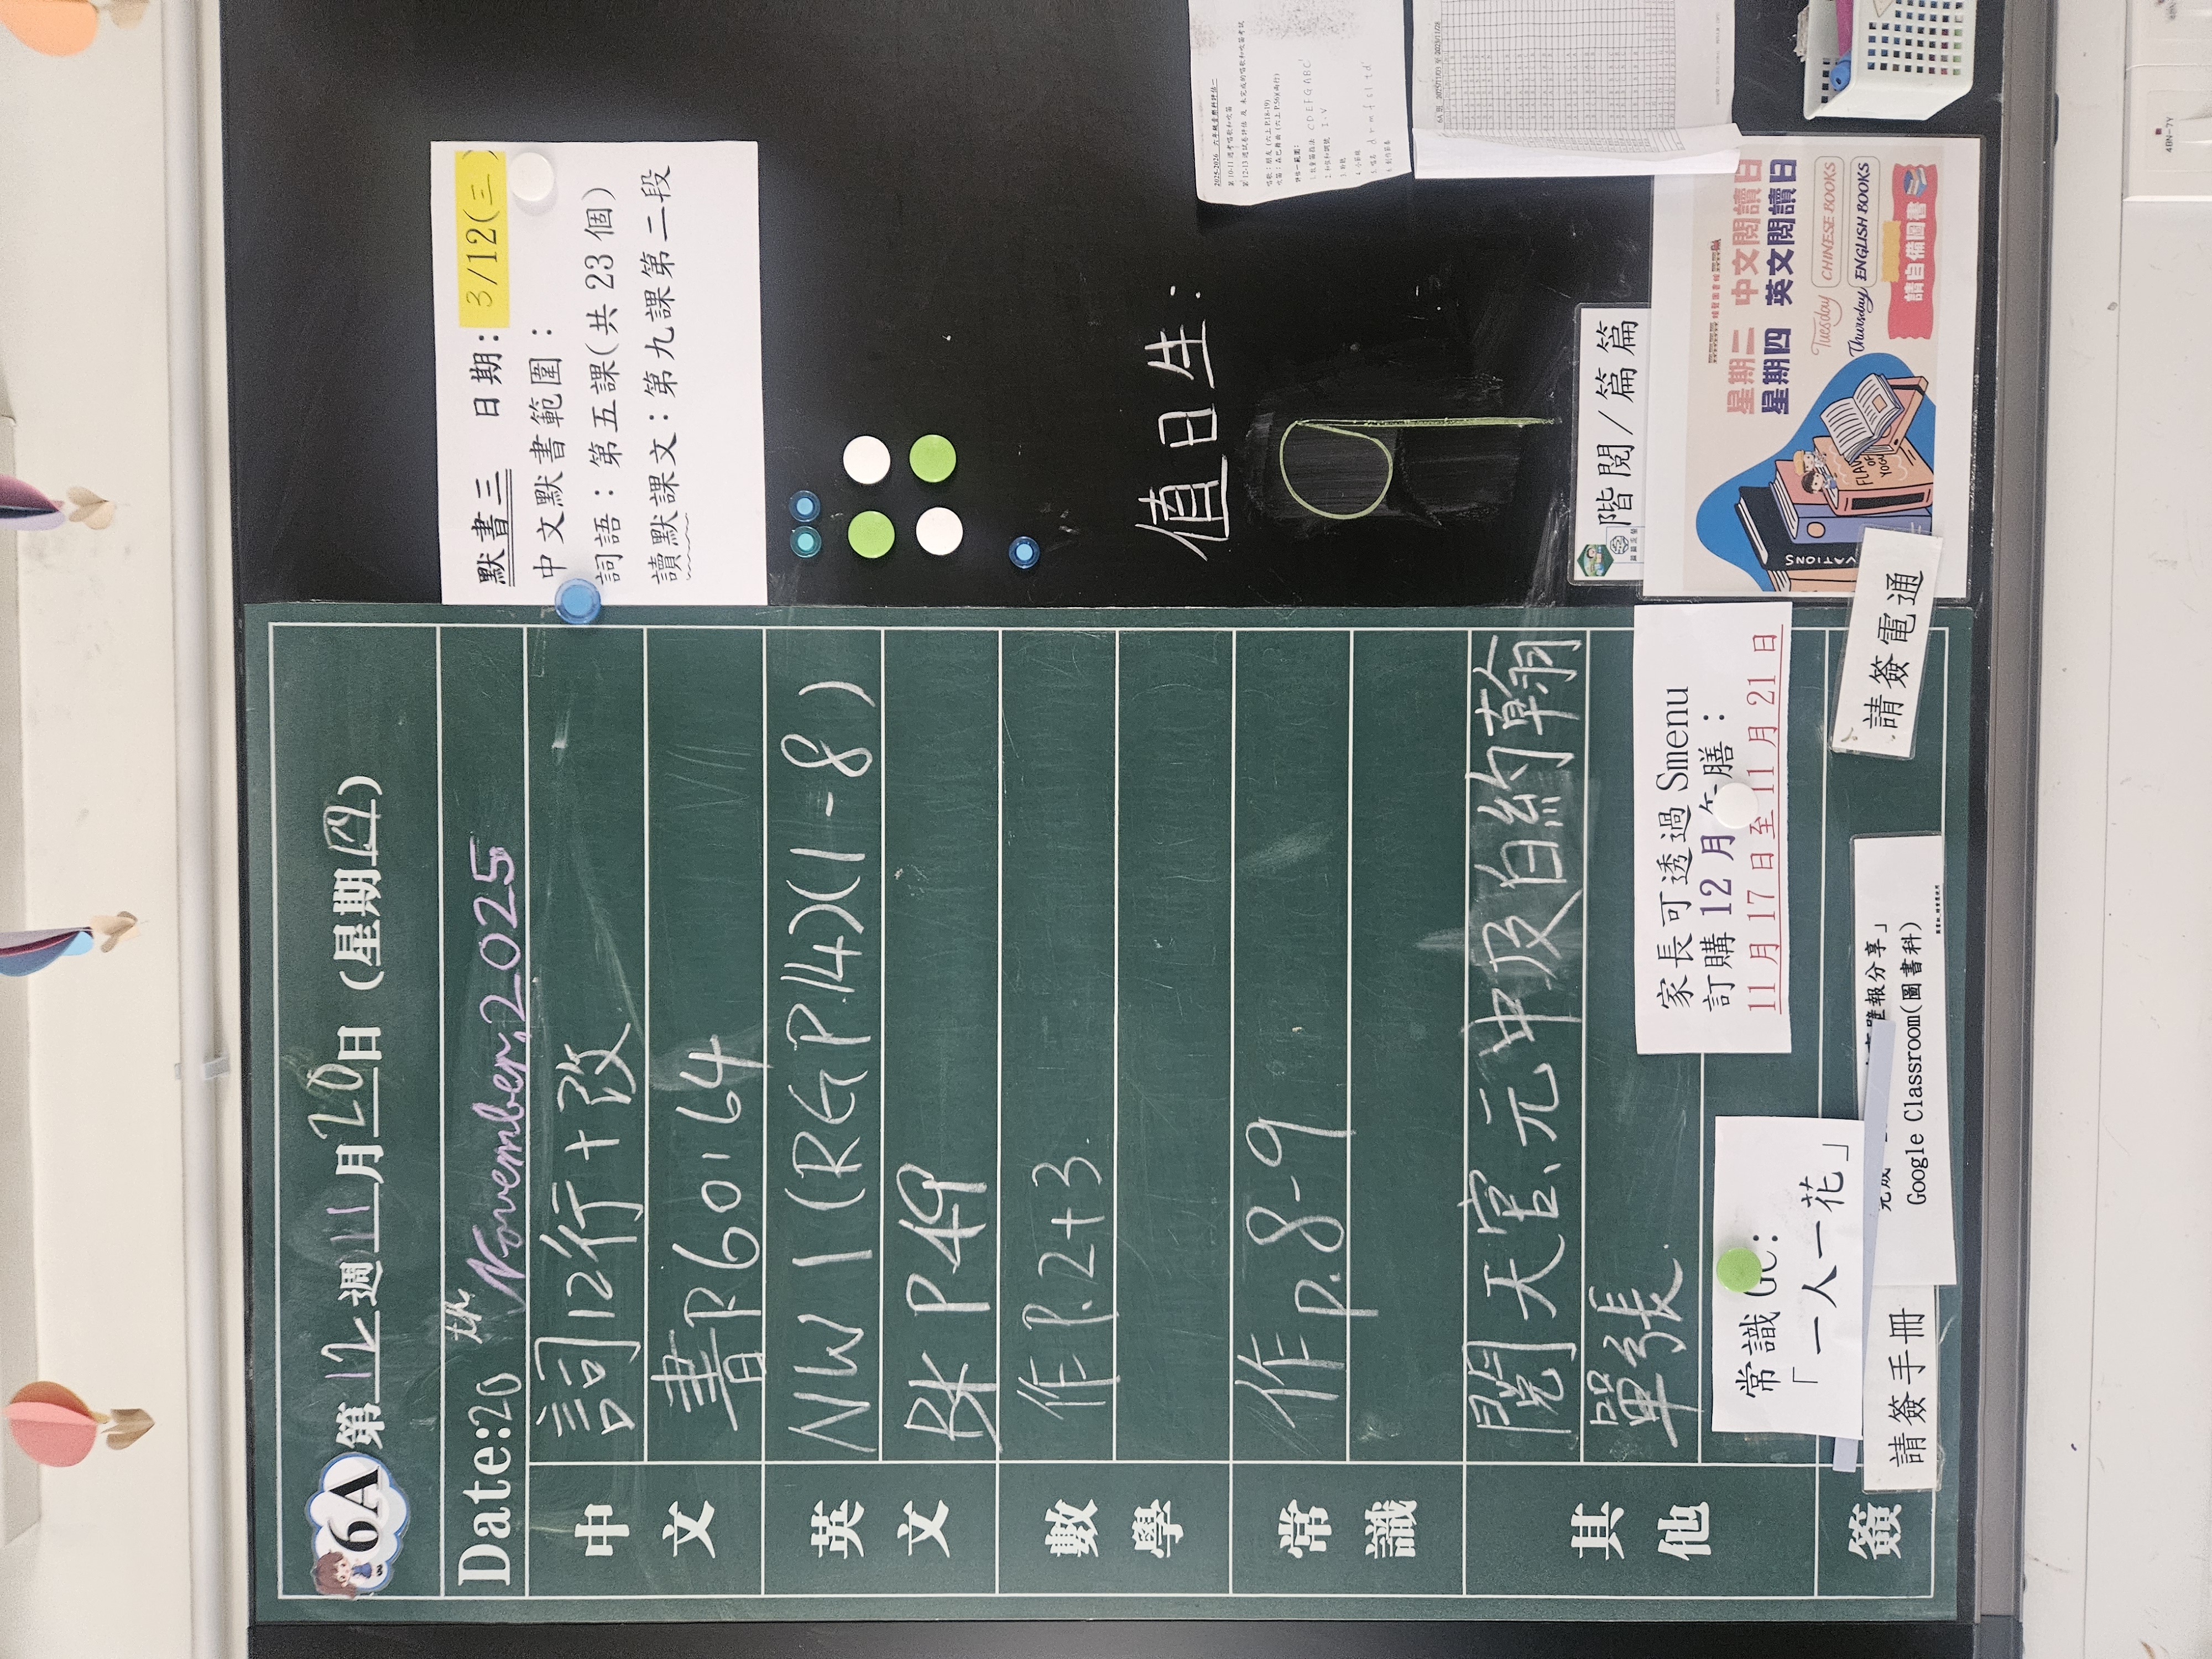 6A 第12週11月20日(星期四)
Date:20th November,2025
中文
詞12行+改
書P.60-64
英文
NW1(RG P.14)(1-8)
BK P.49
數學
作P.2+3
常識
作P.8-9
其他
閱天宮、元冲及白約翰
單張.
常識GC:
「一人一花」
家長可透過Smenu
訂購12月午膳:
11月17日至11月21日
簽
請簽手冊
壁報分享」
Google Classroom(圖書科)
請簽電通
默書三 日期:3/12(三)
中文默書範圍:
詞語:第五課(共23個)
讀默課文:第九課第二段
值日生:
階閱/篇篇
星期二 中文閱讀日
星期四 英文閱讀日
Tuesday CHINESE BOOKS
Thursday ENGLISH BOOKS
請自備圖書
2025-2026 六年級音樂科評估二
第10-11週考唱歌和吹笛